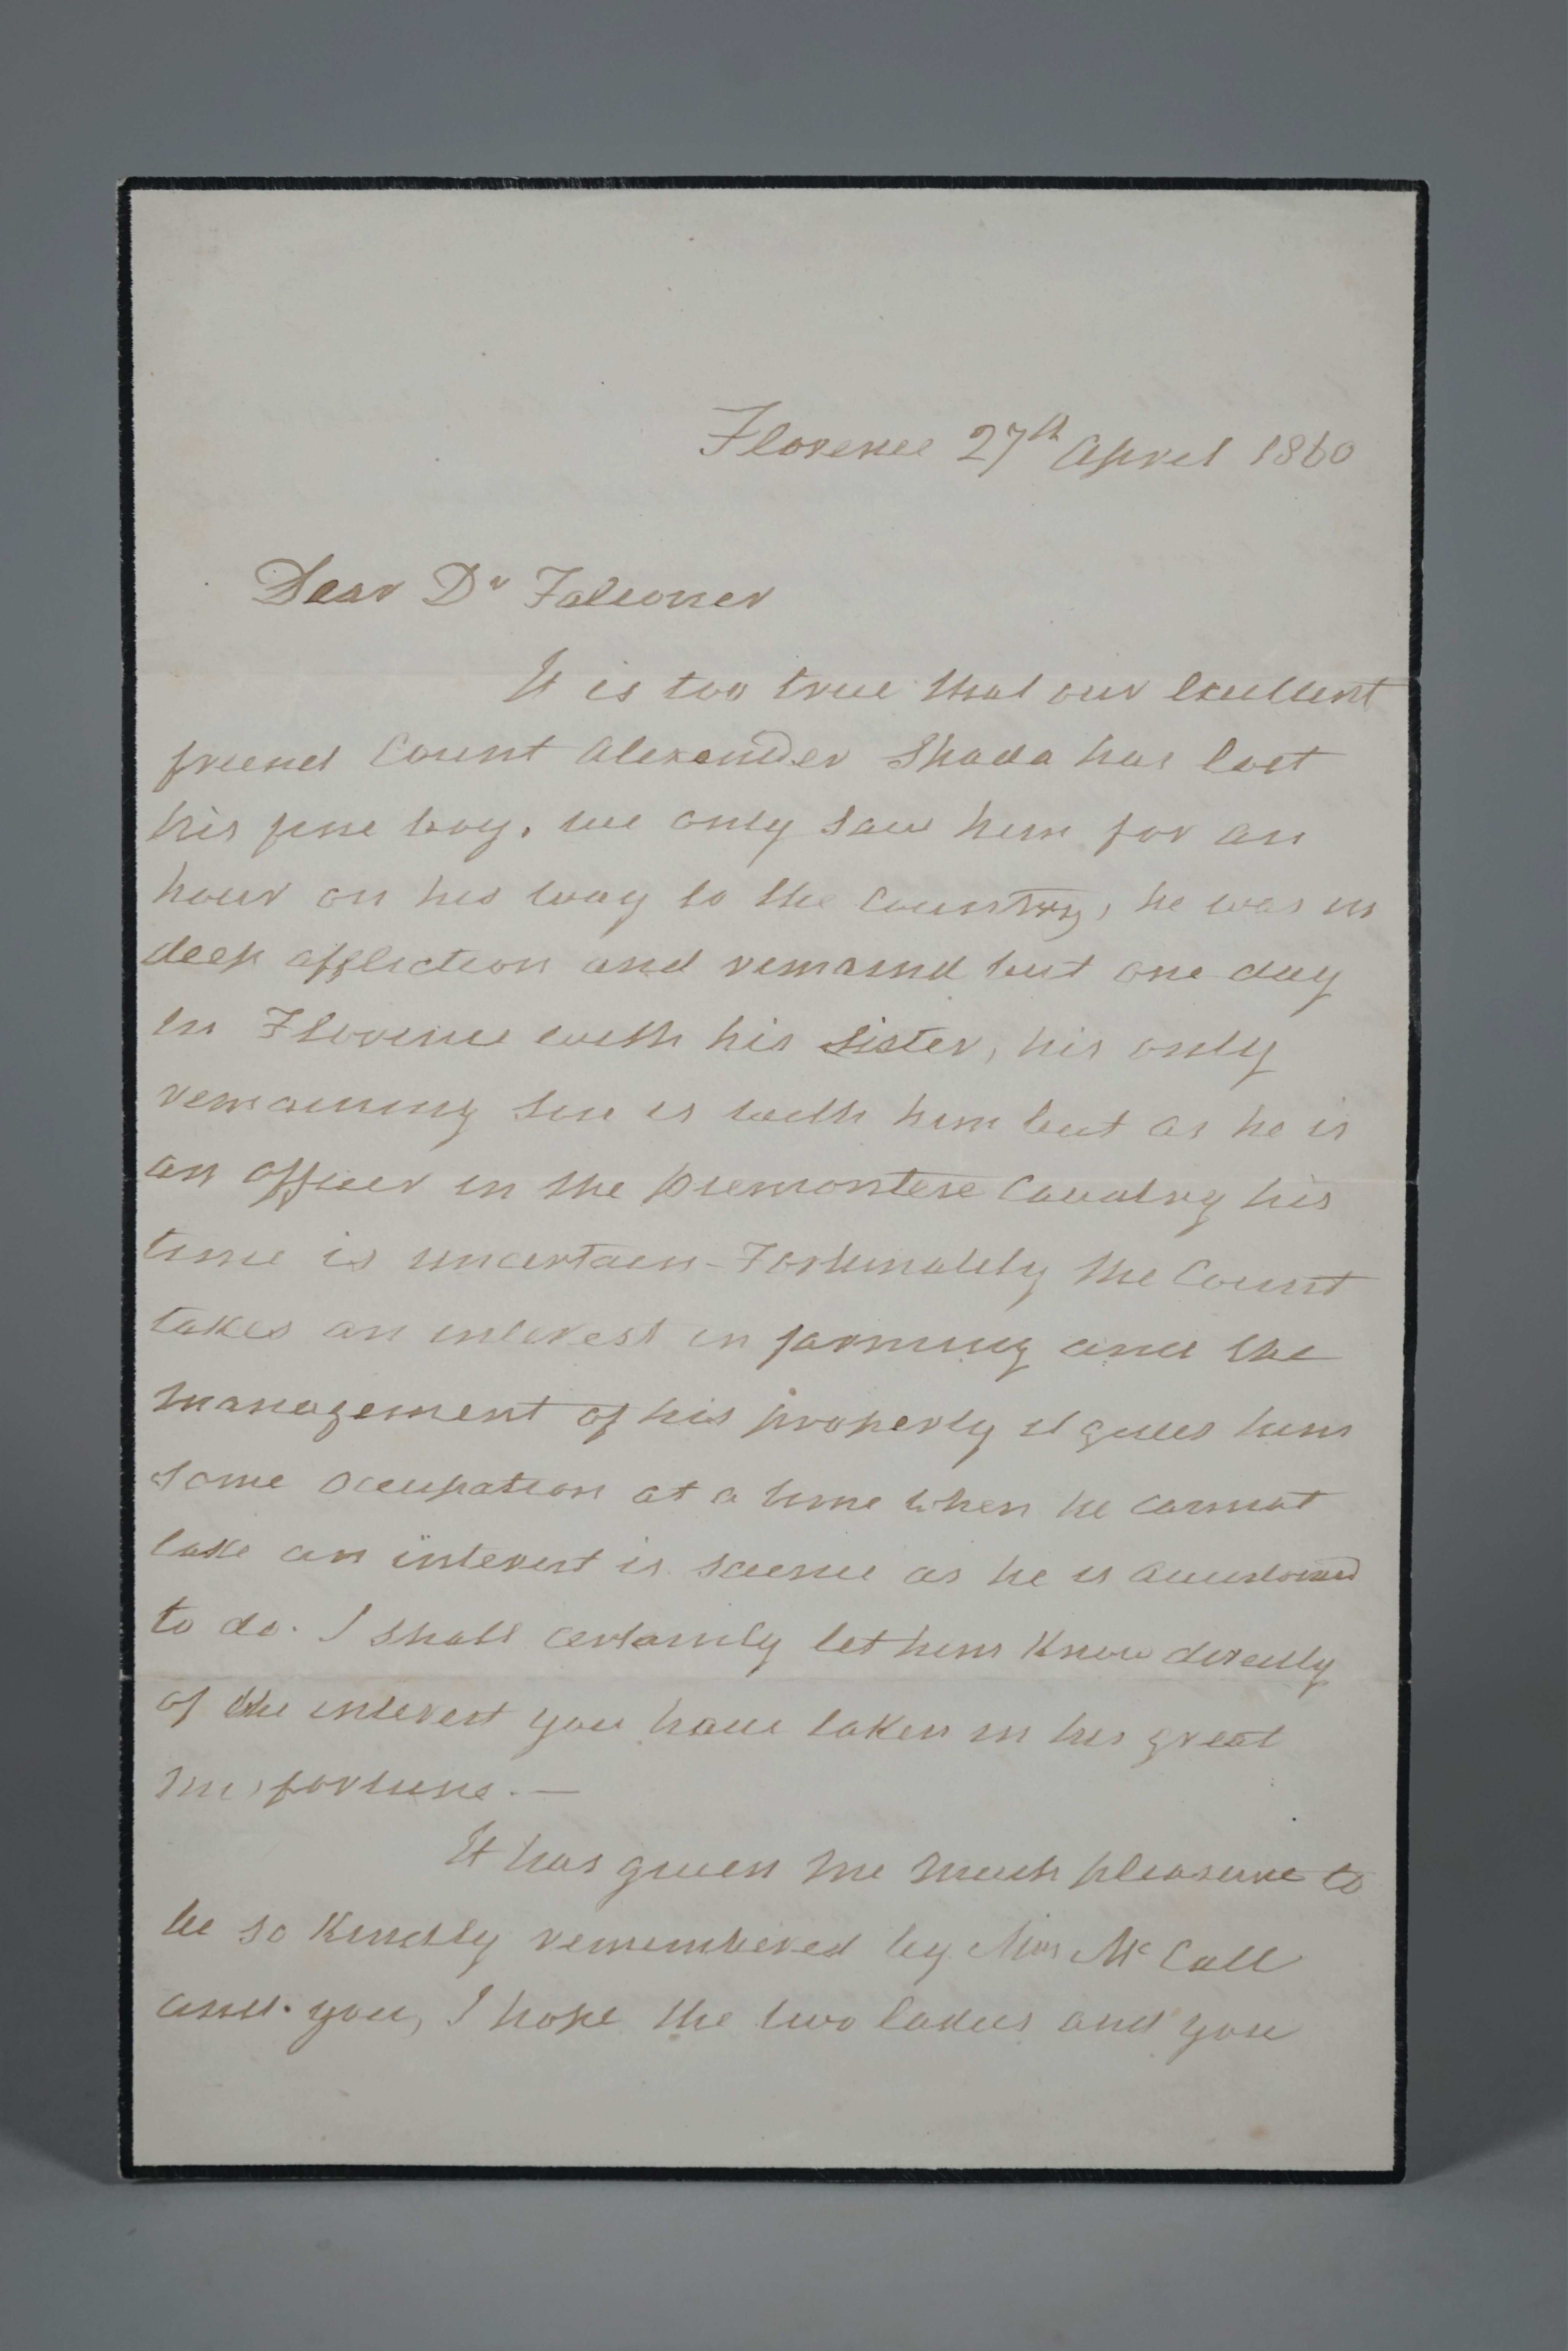 Florence 27th April 1860
Dear Dr Falconer
It is too true that our excellent
friend Count Alexander Spada has lost
his fine boy, we only saw him for an
hour on his way to the Country, he was in
deep affliction and remaind but one day
in Florence with his sister, his only
remaining son is with him but as he is
an officer in the Piemontese Cavalry his
time is uncertain - Fortunately the Count
takes an interest in farming and the
management of his property it gives him
some occupation at a time when he cannot
take an interest is science as he is accustomed
to do. I shall certainly let him know directly
of the interest you have taken in his great
misfortune. —
It has given me much pleasure to
be so kindly remembered by Miss McCall
and you, I hope the two ladies and you